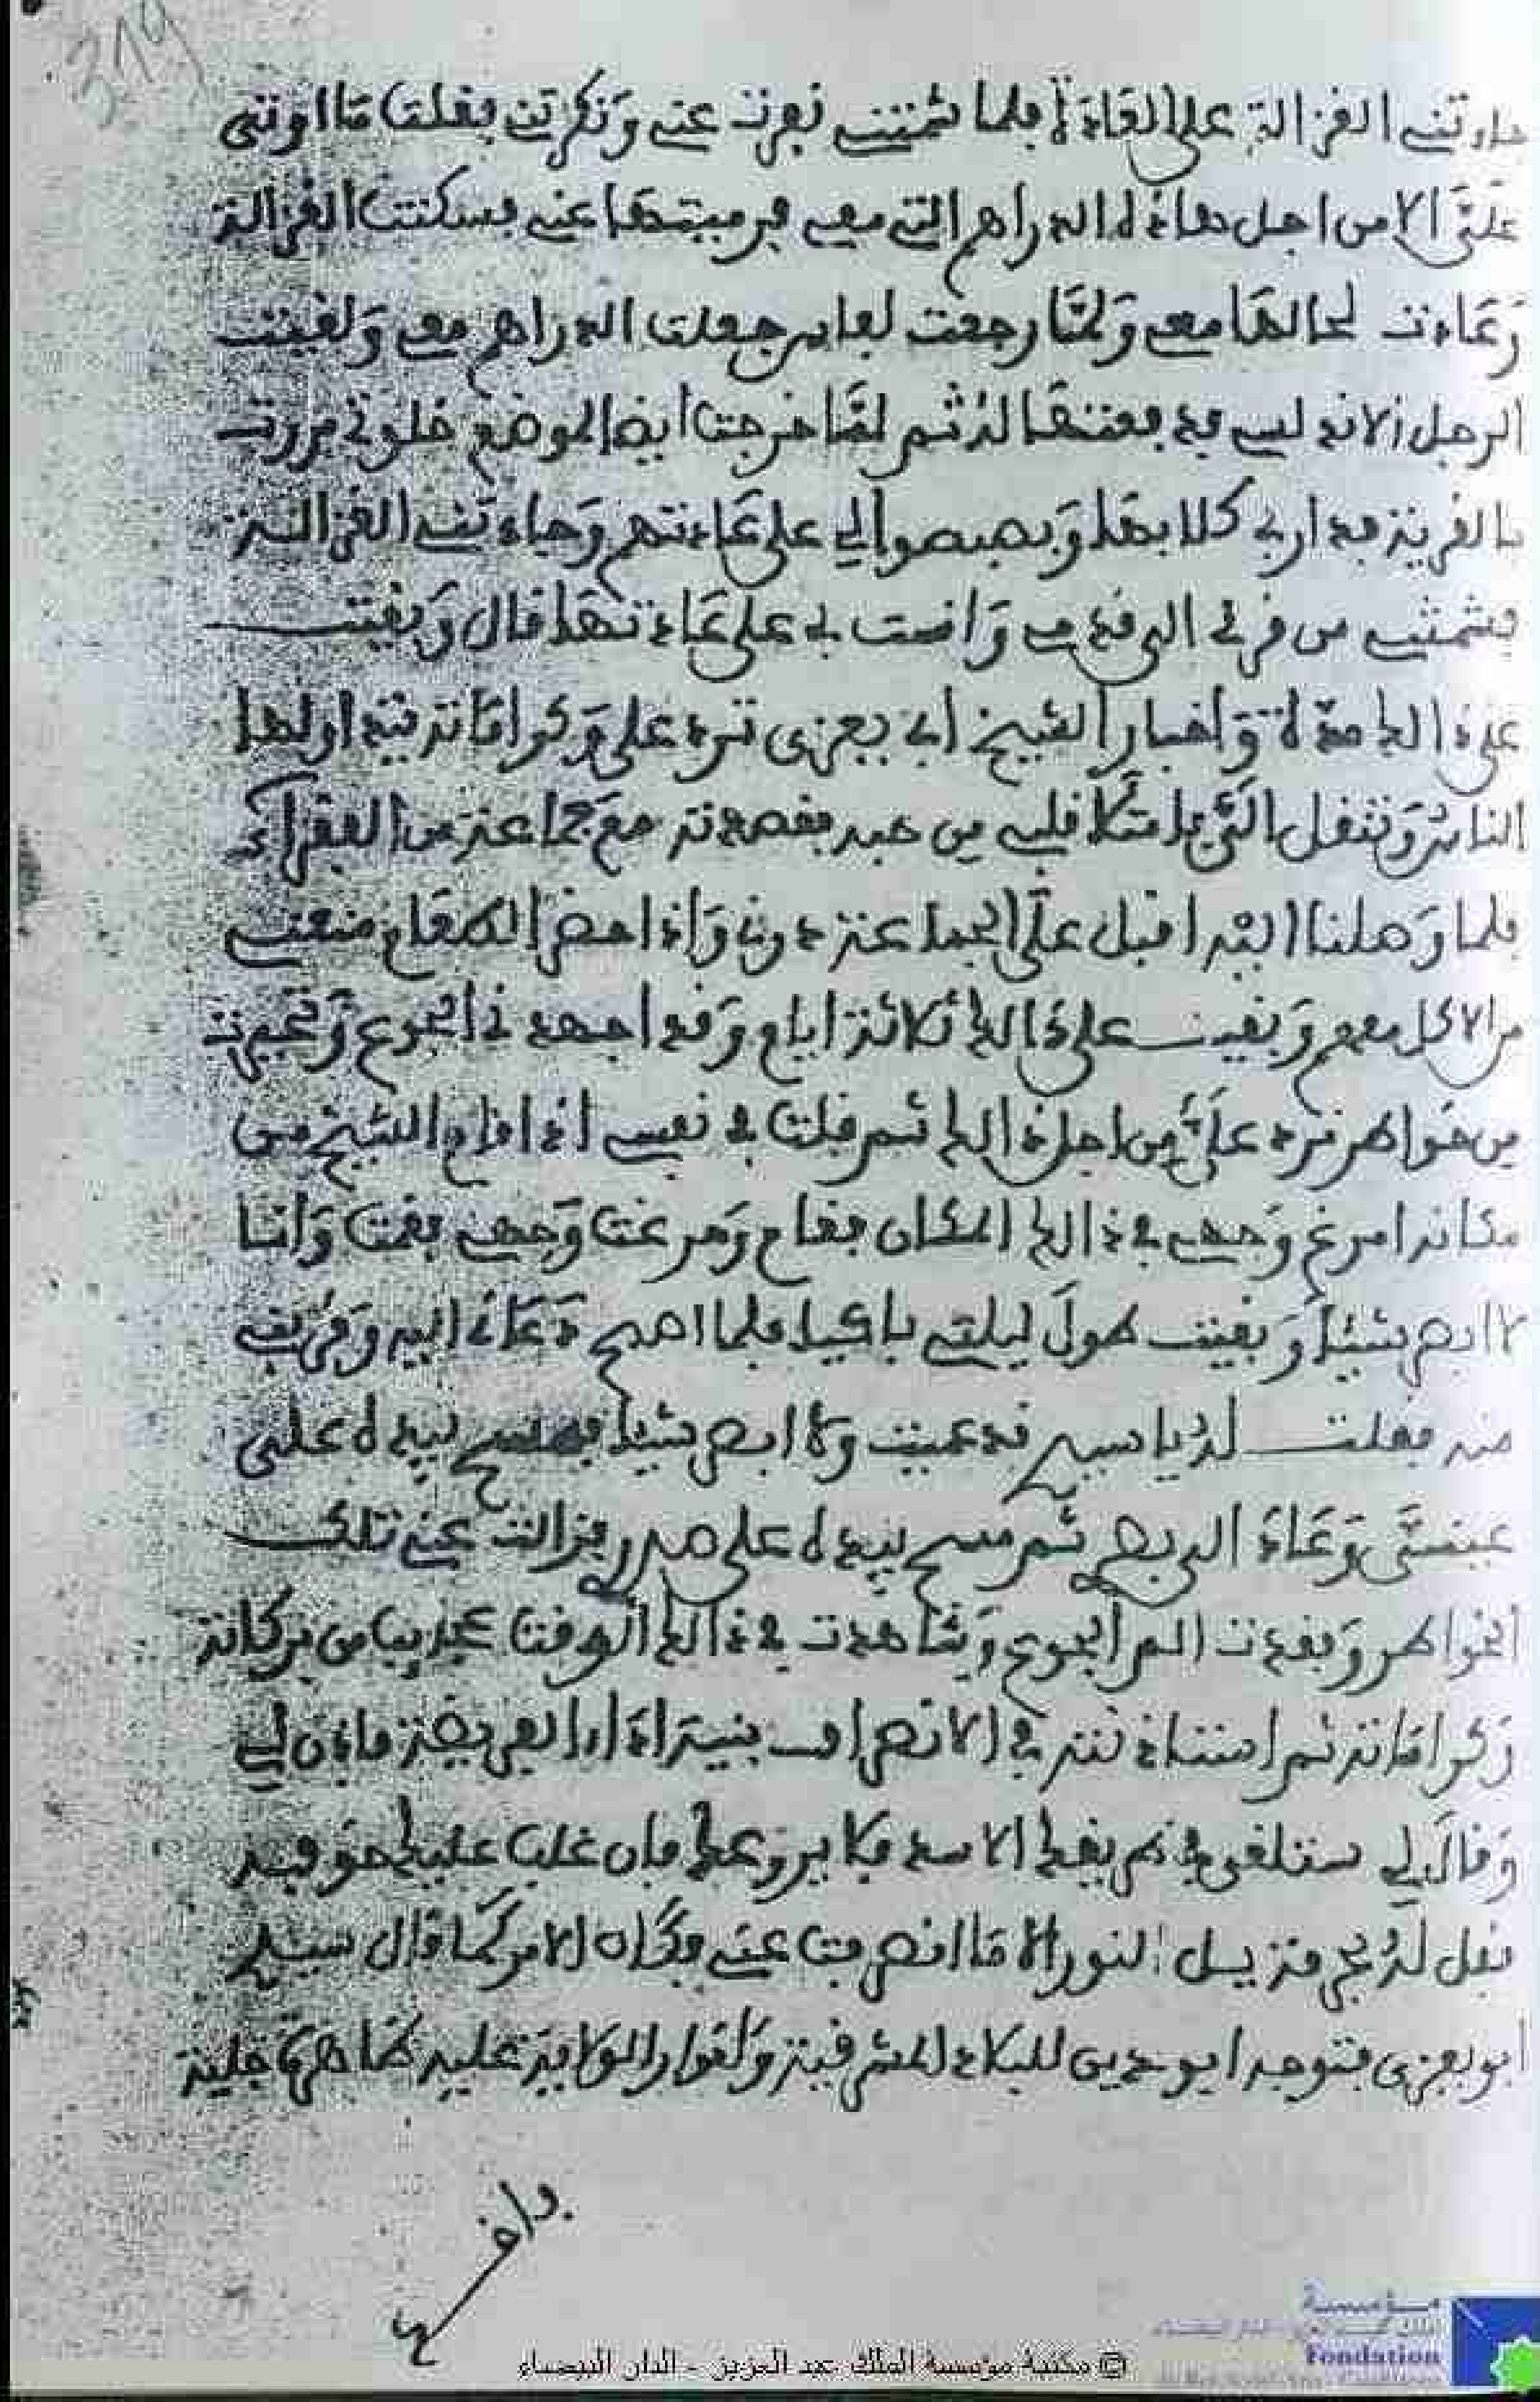 319
جاءتني الغزالة على العادة فلما شمتني نفرت عني ونكرتني فقلت ما اوتي
علي الا من اجل هاذه الدراهم التي معي فرميتها عني فسكنت الغزالة
وعادت لحالها معي ولما رجعت لفاس جعلت الدراهم معي ولقيت
الرجل الاندلسي فدفعتها له ثم لما خرجت ايضا لموضع خلوتي مررت
بالقرية فدار بي كلابها وبصبصوا لي على عادتهم وجاءتني الغزالة
فشمتني من قرني الى قدمي وانست بي على عادتها قال وبقيت
على ذالك مدة واخبار الشيخ ابي يعزى ترد علي وكراماته يتداولها
الناس وتنقل الي فامتلا قلبي من حبه فقصدته مع جماعة من الفقراء
فلما وصلنا اليه اقبل على الجماعة دوني واذا حضر الطعام منعني
من الاكل معهم وبقيت على ذالك ثلاثة ايام وقد اجهدني الجوع وتحيرت
من خواطر ترد علي من اجل ذالك ثم قلت في نفسي اذا قام الشيخ من
مكانه امرغ وجهي في ذالك المكان فقام ومرغت وجهي فقمت وانا
لا ابصر شيئا وبقيت طول ليلتي باكيا فلما اصبح دعاني اليه وقربني
منه فقلت له يا سيدي قد عميت ولا ابصر شيئا فمسح بيده على
عيني وعاد الي بصري ثم مسح بيده على صدري فزالت عني تلك
الخواطر وفقدت الم الجوع وشاهدت في ذالك الوقت عجايبا من بركاته
وكراماته ثم استاذنته في الانصراف بنية اداء الفريضة فاذن لي
وقال لي ستلقى في طريقك الاسد فلا يروعك فان غلب عليك خوفه
فقل له بحرمة يسل النور الا ما انصرفت عني فكان الامر كما قال سيدي
ابو يعزى فتوجه ابو مدين للبلاد المشرقية وانوار الولاية عليه ظاهرة جلية
© مكتبة مؤسسة الملك عبد العزيز - الدار البيضاء
مؤسسة
Fondation